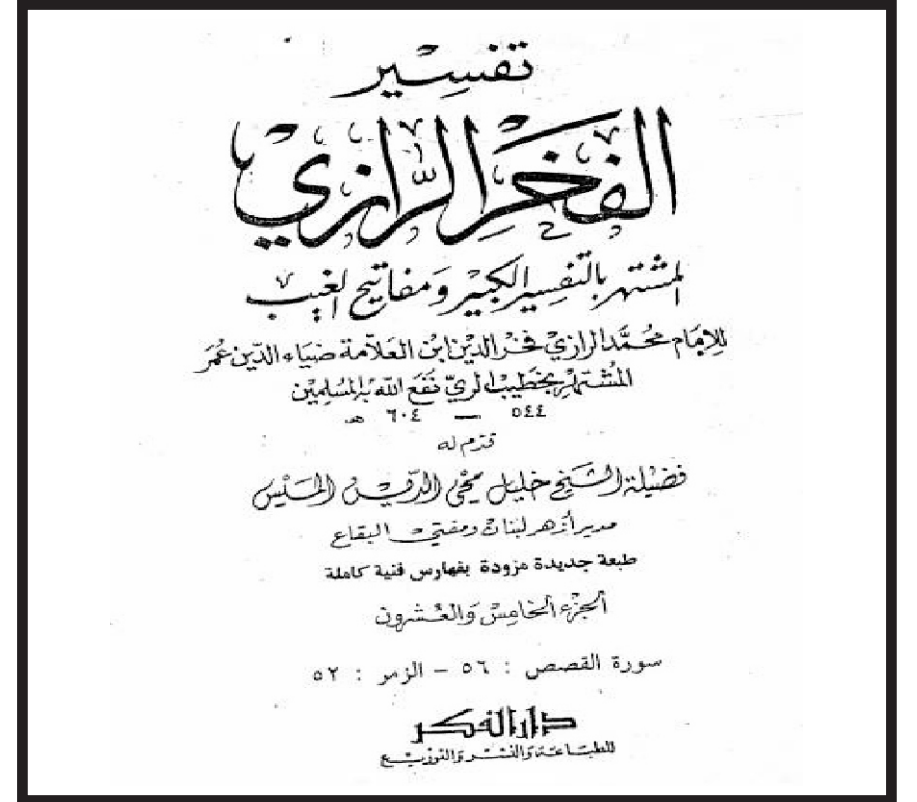 تفسير
الفخر الرازي
المشتهر بالتفسير الكبير ومفاتيح الغيب
للإمام محمد الرازي فخر الدين ابن العلامة ضياء الدين عمر
المشتهر بخطيب الري نفع الله به المسلمين
٥٤٤ — ٦٠٤ هـ
قدم له
فضيلة الشيخ خليل محي الدين الميس
مدير أزهر لبنان ومفتي البقاع
طبعة جديدة مزودة بفهارس فنية كاملة
الجزء الخامس والعشرون
سورة القصص : ٥٦ – الزمر : ٥٢
دار الفكر
للطباعة والنشر والتوزيع